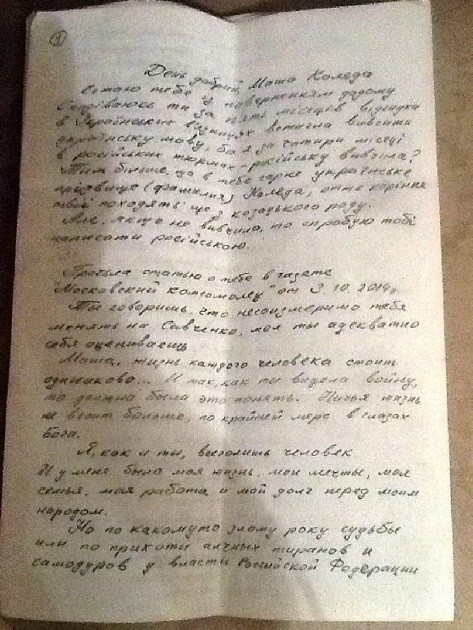 1
День добрий, Маша Коледа
Вітаю тебе із поверненням додому
Сподіваюсь ти за п'ять місяців відсидки
в Українських вязницях встигла вивчити
українську мову, бо я за чотири місяці
в російських тюрмах – російську вивчила?
Тим більше, що в тебе гарне українське
прізвище (фамилия) Коледа, отже коріння
твої походять ще з козацького роду.
Але, якщо не вивчила, то спробую тобі
написати російською.
Прочла статью о тебе в газете
"Московский комсомолец" от 3.10.2014г.
Ты говоришь, что несоизмеримо тебя
менять на Савченко, мол ты адекватно
себя оцениваешь
Маша, жизнь каждого человека стоит
одинаково... И так, как ты видела войну,
то должна была это понять. Ничья жизнь
не весит больше, по крайней мере в глазах
Бога.
Я, как и ты, человек.
И у меня была моя жизнь, мои мечты, моя
семья, моя работа и мой долг перед моим
народом.
Но по какомуто злому року судьбы
или по прихоти алчных тиранов и
самодуров у власти Российской Федерации